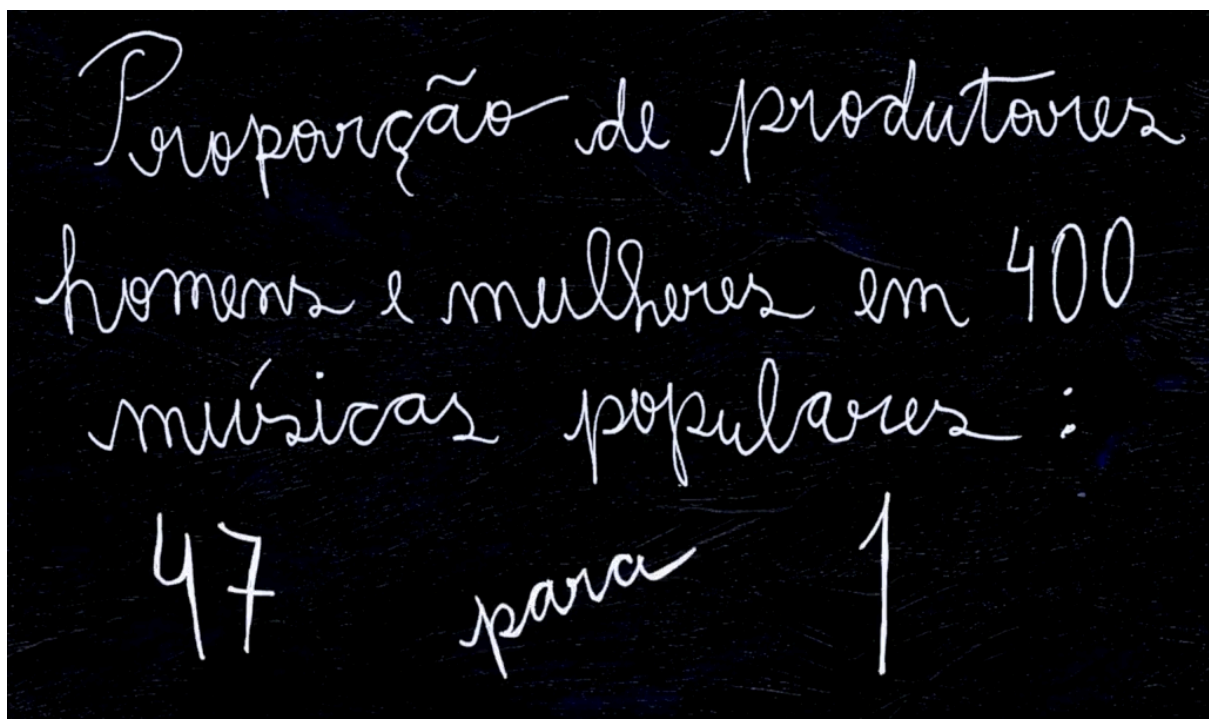 Proporção de produtores
homens e mulheres em 400
músicas populares :
47 para 1